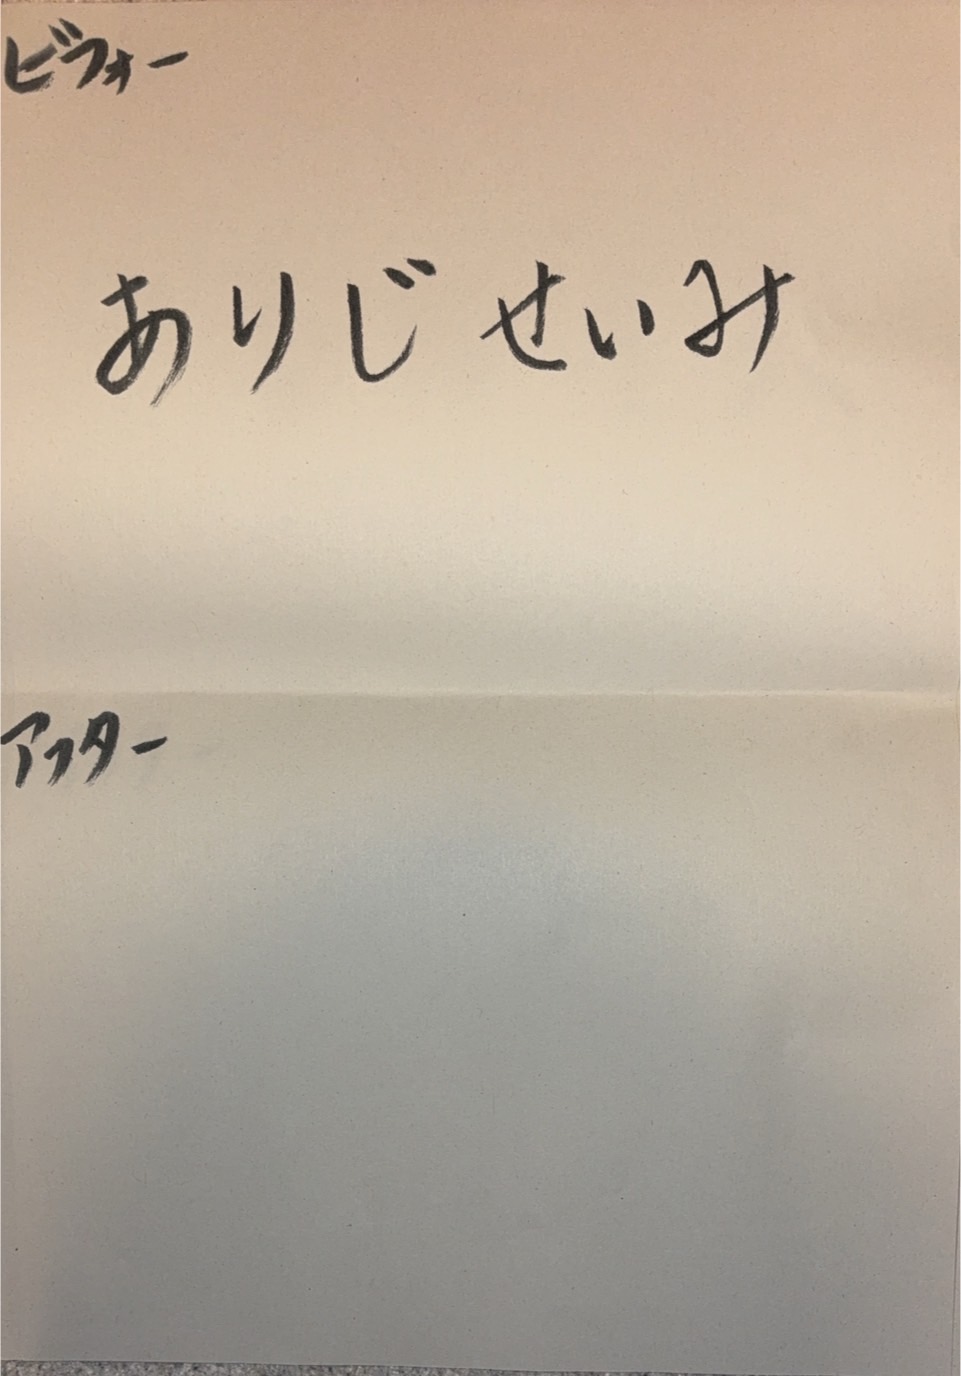 ビフォー
ありじせいみ
アフター